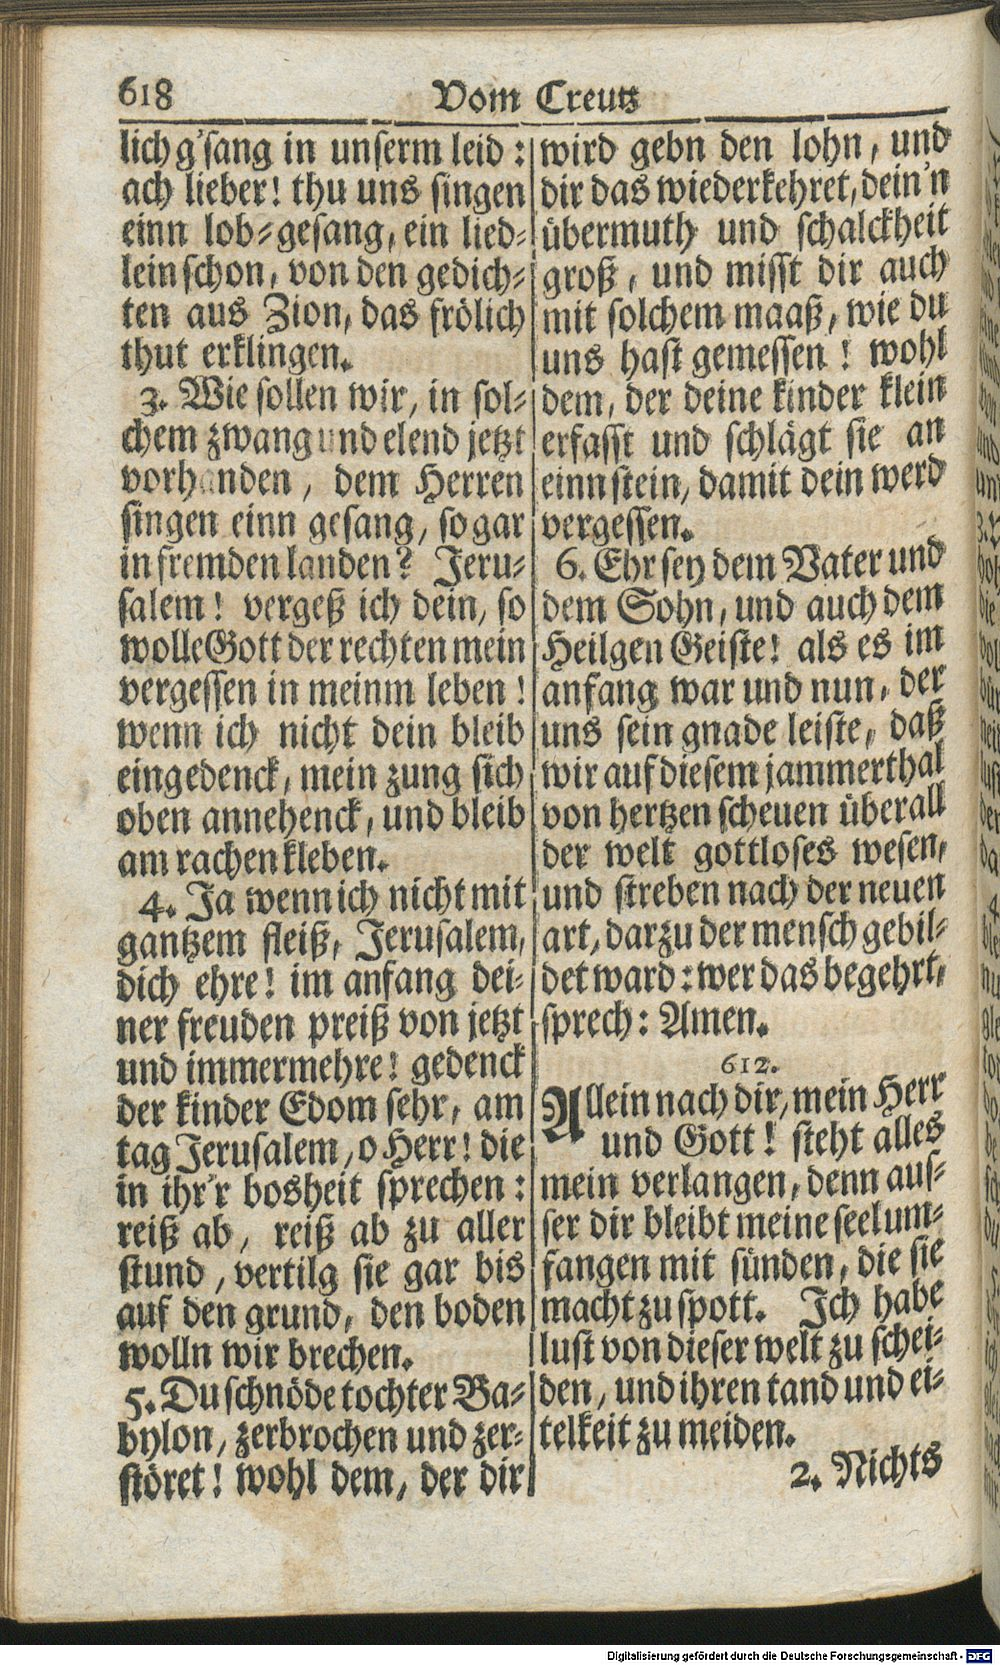 618
Vom Creutz
lich g'sang in unserm leid:
ach lieber! thu uns singen
einn lob-gesang, ein lied-
lein schon, von den gedich-
ten aus Zion, das frölich
thut erklingen.
3. Wie sollen wir, in sol-
chem zwang und elend jetzt
vorhanden, dem Herren
singen einn gesang, so gar
in fremden landen? Jeru-
salem! vergeß ich dein, so
wolle Gott der rechten mein
vergessen in meinm leben!
wenn ich nicht dein bleib
eingedenck, mein zung sich
oben annehenck, und bleib
am rachen kleben.
4. Ja wenn ich nicht mit
gantzem fleiß, Jerusalem,
dich ehre! im anfang dei-
ner freuden preiß von jetzt
und immermehre! gedenck
der kinder Edom sehr, am
tag Jerusalem, o Herr! die
in ihr'r bosheit sprechen:
reiß ab, reiß ab zu aller
stund, vertilg sie gar bis
auf den grund, den boden
wolln wir brechen.
5. Du schnöde tochter Ba-
bylon, zerbrochen und zer-
störet! wohl dem, der dir
wird gebn den lohn, und
dir das wiederkehret, dein'n
übermuth und schalckheit
groß, und misst dir auch
mit solchem maaß, wie du
uns hast gemessen! wohl
dem, der deine kinder klein
erfasst und schlägt sie an
einn stein, damit dein werd
vergessen.
6. Ehr sey dem Vater und
dem Sohn, und auch dem
Heilgen Geiste! als es im
anfang war und nun, der
uns sein gnade leiste, daß
wir auf diesem jammerthal
von hertzen scheuen überall
der welt gottloses wesen,
und streben nach der neuen
art, darzu der mensch gebil-
det ward: wer das begehrt,
sprech: Amen.
612.
Allein nach dir, mein Herr
und Gott! steht alles
mein verlangen, denn aus-
ser dir bleibt meine seel um-
fangen mit sünden, die sie
macht zu spott. Ich habe
lust von dieser welt zu schei-
den, und ihren tand und ei-
telkeit zu meiden.
2. Nichts
Digitalisierung gefördert durch die Deutsche Forschungsgemeinschaft - DFG